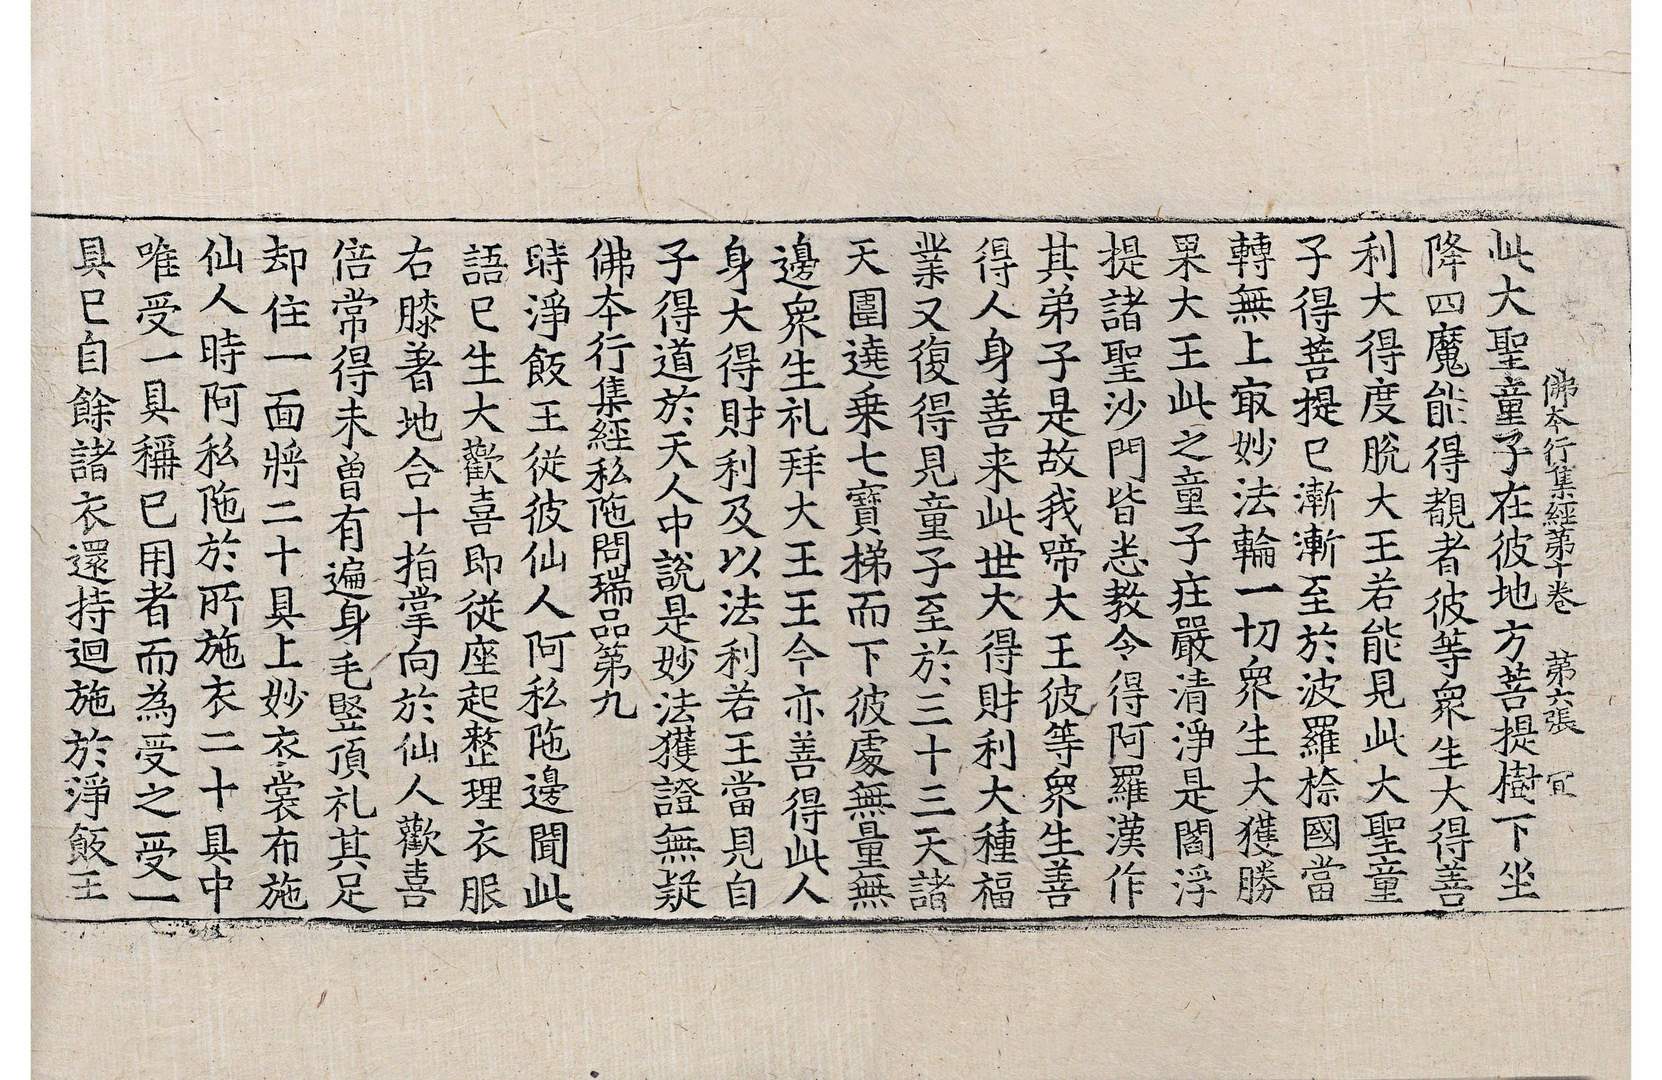 佛夲行集經第十卷　第六張　冝
此大聖童子在彼地方菩提樹下坐
降四魔能得覩者彼等衆生大得善
利大得度脫大王若能見此大聖童
子得菩提已漸漸至於波羅㮈國當
轉無上㝡妙法輪一切衆生大獲勝
果大王此之童子庄嚴清淨是閻浮
提諸聖沙門皆恙教令得阿羅漢作
其弟子是故我啼大王彼等衆生善
得人身善来此世大得財利大種福
業又復得見童子至於三十三天諸
天圍遶乗七寶梯而下彼處無量無
邊衆生礼拜大王王今亦善得此人
身大得財利及以法利若王當見自
子得道於天人中說是妙法獲證無疑
佛夲行集經私陁問瑞品第九
時淨飯王從彼仙人阿私陁邊聞此
語已生大歡喜即從座起整理衣服
右膝著地合十指掌向於仙人歡喜
倍常得未曽有遍身毛竪頂礼其足
却住一面將二十具上妙衣裳布施
仙人時阿私陁於所施衣二十具中
唯受一具稱已用者而為受之受一
具已自餘諸衣還持迴施於淨飯王